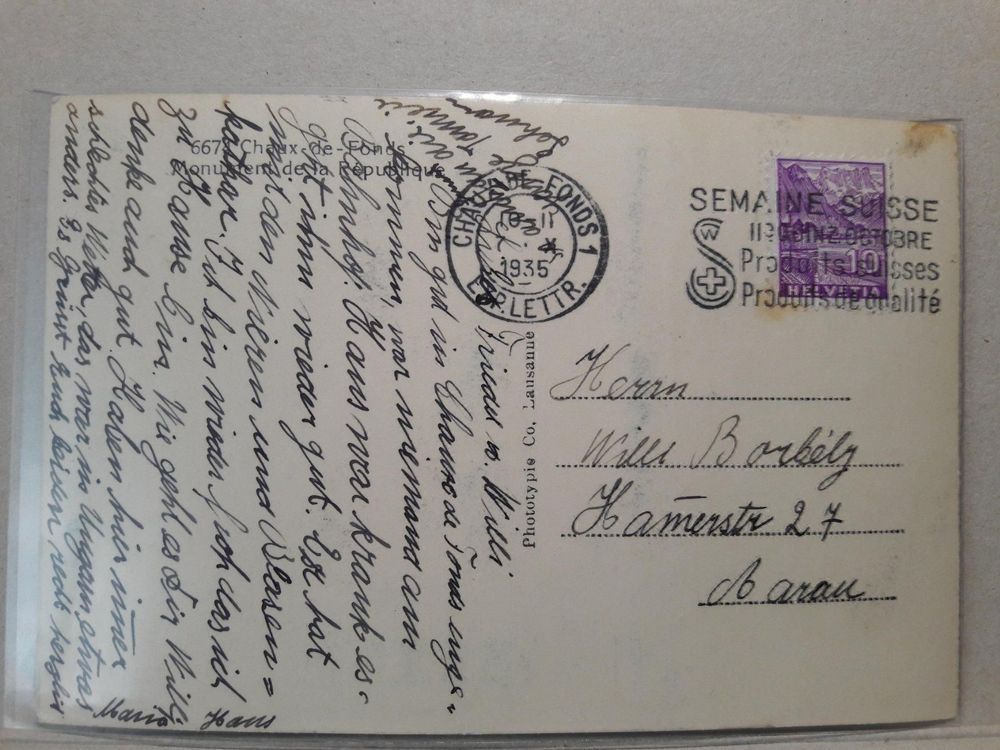 667 Chaux-de-Fonds
Monument de la République
CHAUX-DE-FONDS 1
II
1935
EXP. LETTR.
SEMAINE SUISSE
OCTOBRE
Produits suisses
Produits de qualité
10
HELVETIA
Phototypie Co, Lausanne
Herrn
Willi Borbély
Ham̄erstr 27
Aarau
Frieda u. Willi
Bin gut in Chaux de Fonds ange=
kommen, war niemand am
Bahnhof. Hans war krank es
geht ihm wieder gut. Er hat
mit den Nieren und Blasen=
kathar. Ich bin wieder froh das ich
zu Hause bin. Wie geht es Dir Willi
denke auch gut. Haben hier im̄er
schlechtes Wetter, das war in Ungarn etwas
anders. Es Grüsst Euch beiden recht herzlich
Maria Hans